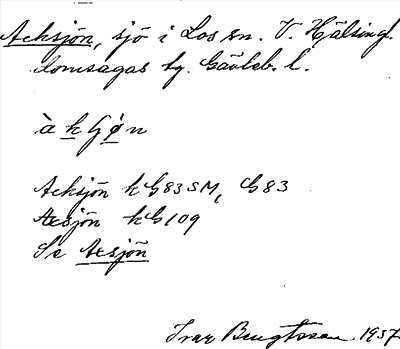 Acksjön, sjö i Los sn. V. Hälsingl.
domsagas tg. Gävleb. l.
à k G ø n
Acksjön kG83SM, G83
Axsjön kG109
Se Axsjön
Ivar Bengtsson 1937